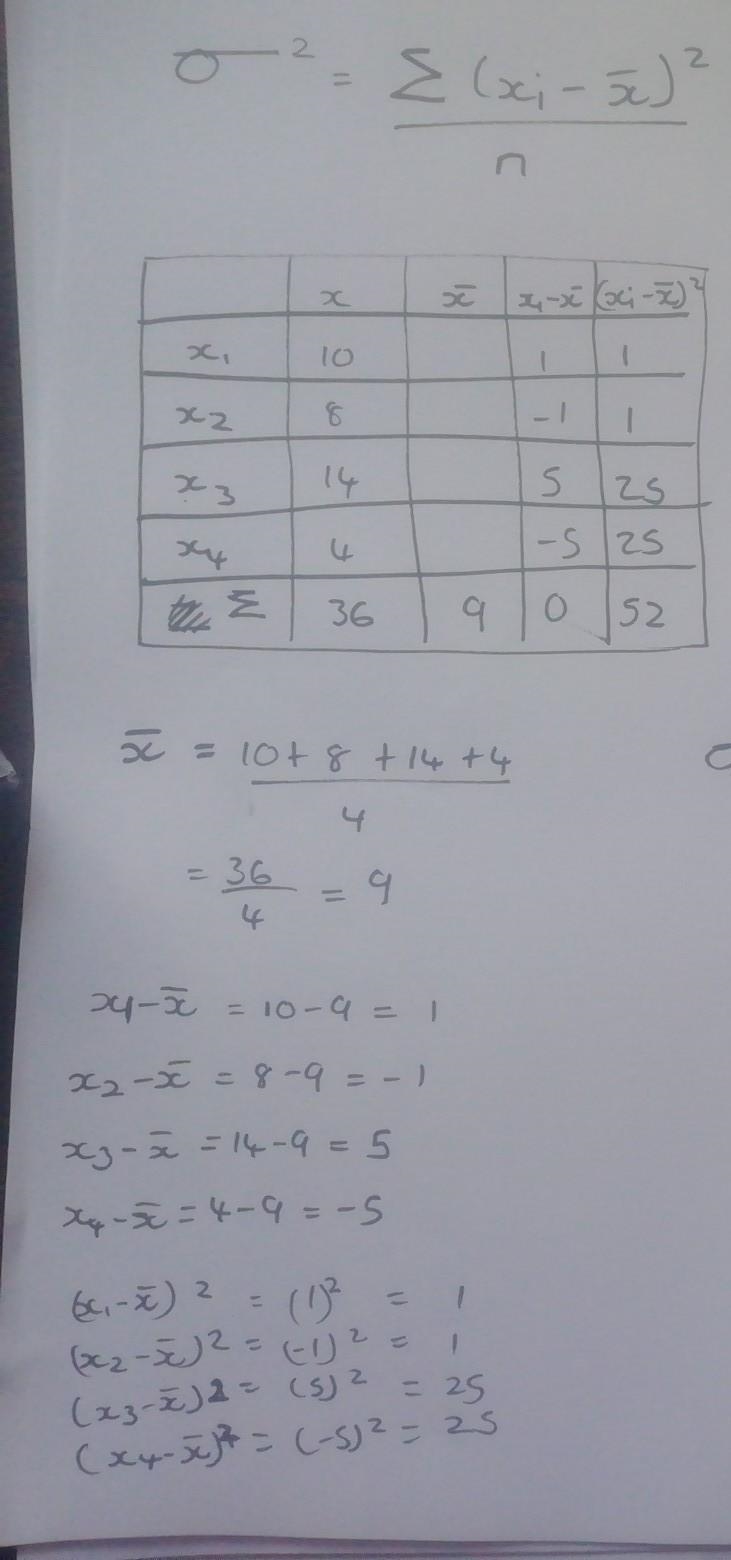 σ² = Σ (xi - x̄)²
n
x x̄ xi-x̄ (xi-x̄)²
x1 10 1 1
x2 8 -1 1
x3 14 5 25
x4 4 -5 25
Σ 36 9 0 52
x̄ = 10+ 8 +14 +4
4
= 36/4 = 9
x1-x̄ = 10-9 = 1
x2-x̄ = 8-9 = -1
x3-x̄ = 14-9 = 5
x4-x̄ = 4-9 = -5
(x1-x̄)² = (1)² = 1
(x2-x̄)² = (-1)² = 1
(x3-x̄)² = (5)² = 25
(x4-x̄)² = (-5)² = 25